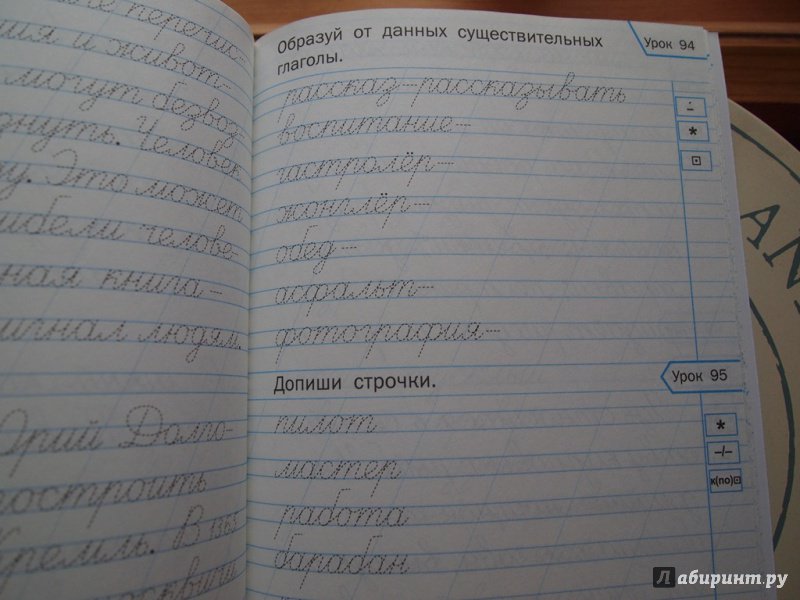 перечис-
ния и живот-
могут безвоз-
нуть. Человек
у. Это может
ибели челове-
ная книга —
сигнал людям.
Юрий Долго-
построить
Кремль. В 1363
москвичи
Образуй от данных существительных
глаголы.
Урок 94
рассказ — рассказывать
воспитание —
гастролёр —
жонглёр —
обед —
асфальт —
фотография —
*
Допиши строчки.
Урок 95
пилот
мастер
работа
барабан
*
–/–
к(по)⊡
AN
Лабиринт.ру